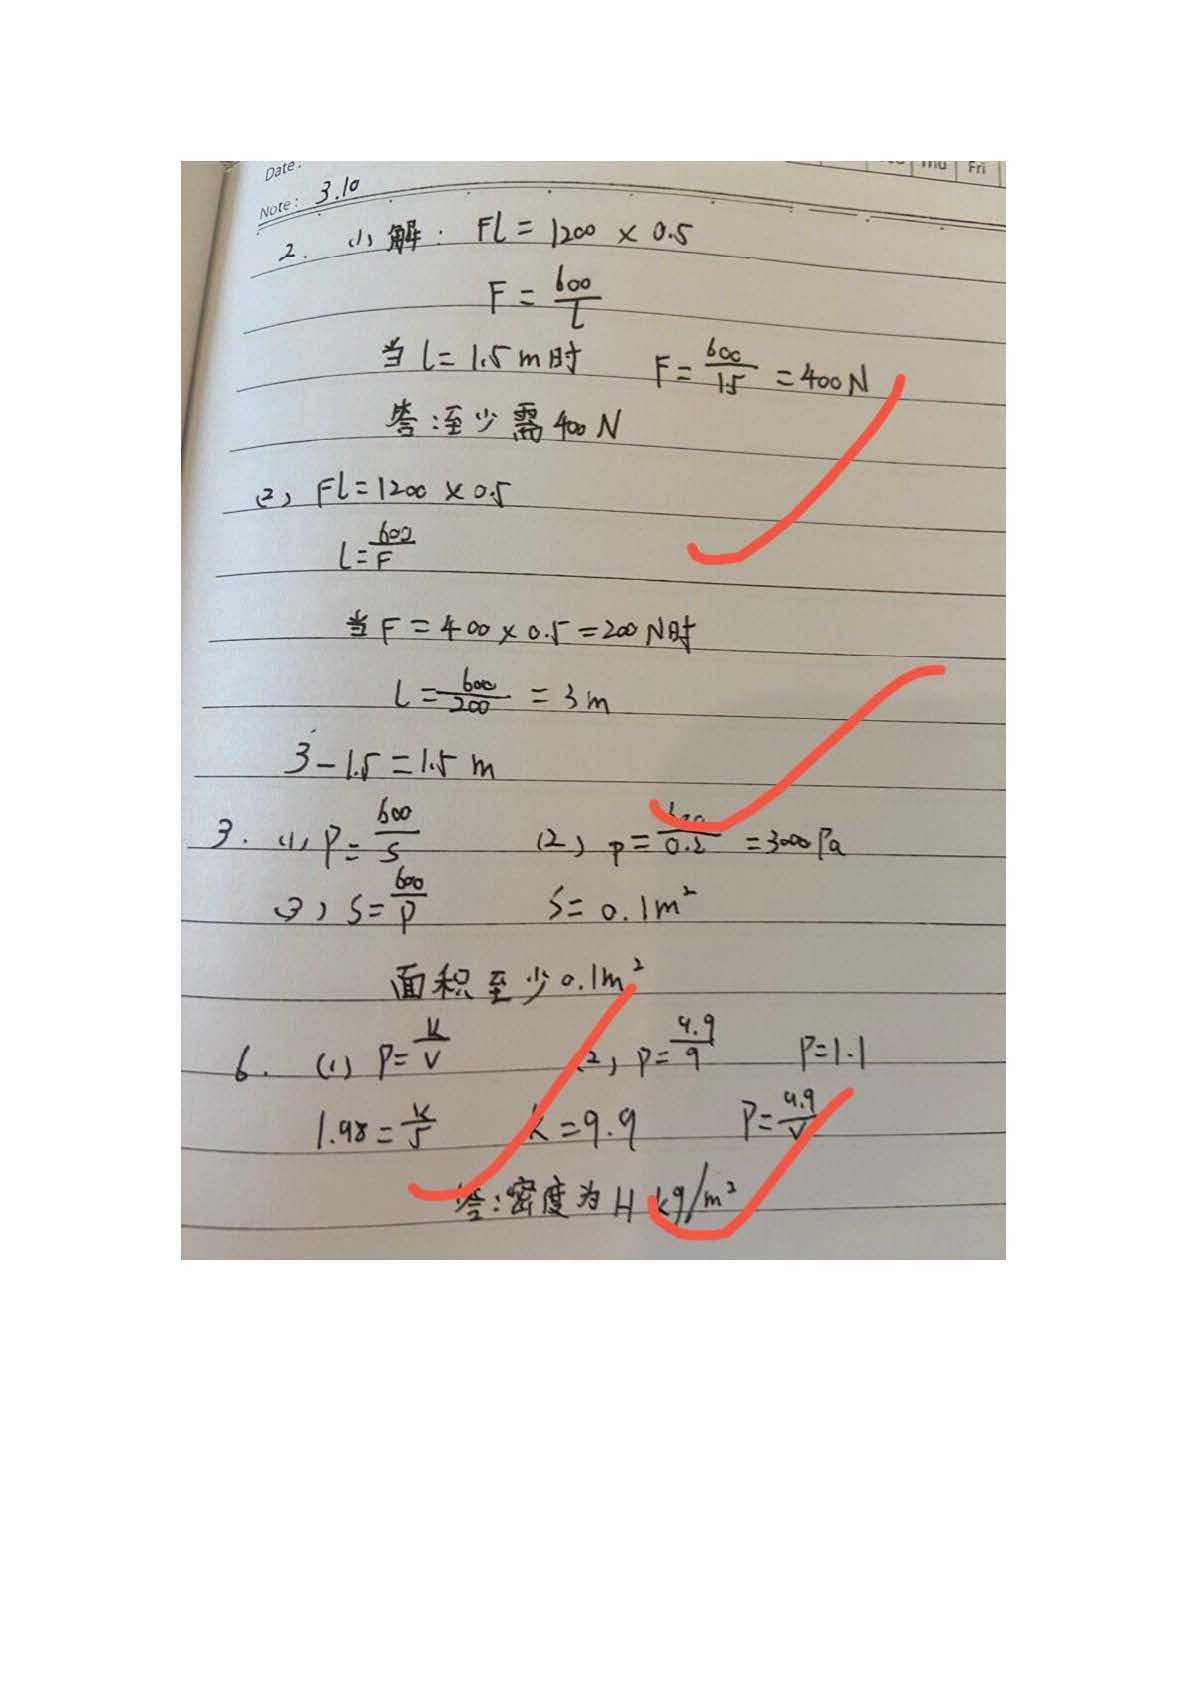 Date:
Thu Fri
Note: 3.10
2. (1) 解: Fl = 1200 × 0.5
F = 600/l
当 l = 1.5 m时 F = 600/1.5 = 400 N
答:至少需 400 N
(2) Fl = 1200 × 0.5
l = 600/F
当 F = 400 × 0.5 = 200 N时
l = 600/200 = 3 m
3 - 1.5 = 1.5 m
3. (1) P = 600/S (2) P = 600/0.2 = 3000 Pa
(3) S = 600/P S = 0.1 m²
面积至少 0.1 m²
6. (1) P = k/V (2) P = 9.9/9 P = 1.1
1.98 = k/5 k = 9.9 P = 9.9/V
答:密度为 1.1 kg/m²